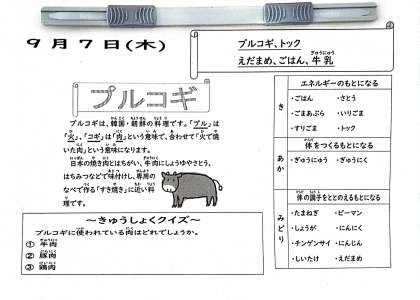 9月7日(木)
プルコギ、トック
えだまめ、ごはん、牛乳
ぎゅうにゅう
プルコギ
プルコギは、韓国・朝鮮の料理です。「プル」は
「火」、「コギ」は「肉」という意味で、合わせて「火で焼
いた肉」という意味になります。
日本の焼き肉とはちがい、牛肉にしょうゆやさとう、
はちみつなどで味付けし、専用の
なべで作る「すき焼き」に近い料
理です。
〜きゅうしょくクイズ〜
プルコギに使われている肉はどれでしょうか。
① 牛肉
② 豚肉
③ 鶏肉
き
エネルギーのもとになる
・ごはん ・さとう
・ごまあぶら ・いりごま
・すりごま ・トック
あか
体をつくるもとになる
・ぎゅうにゅう ・ぎゅうにく
みどり
体の調子をととのえるもとになる
・たまねぎ ・ピーマン
・しょうが ・にんにく
・チンゲンサイ ・にんじん
・しいたけ ・えだまめ